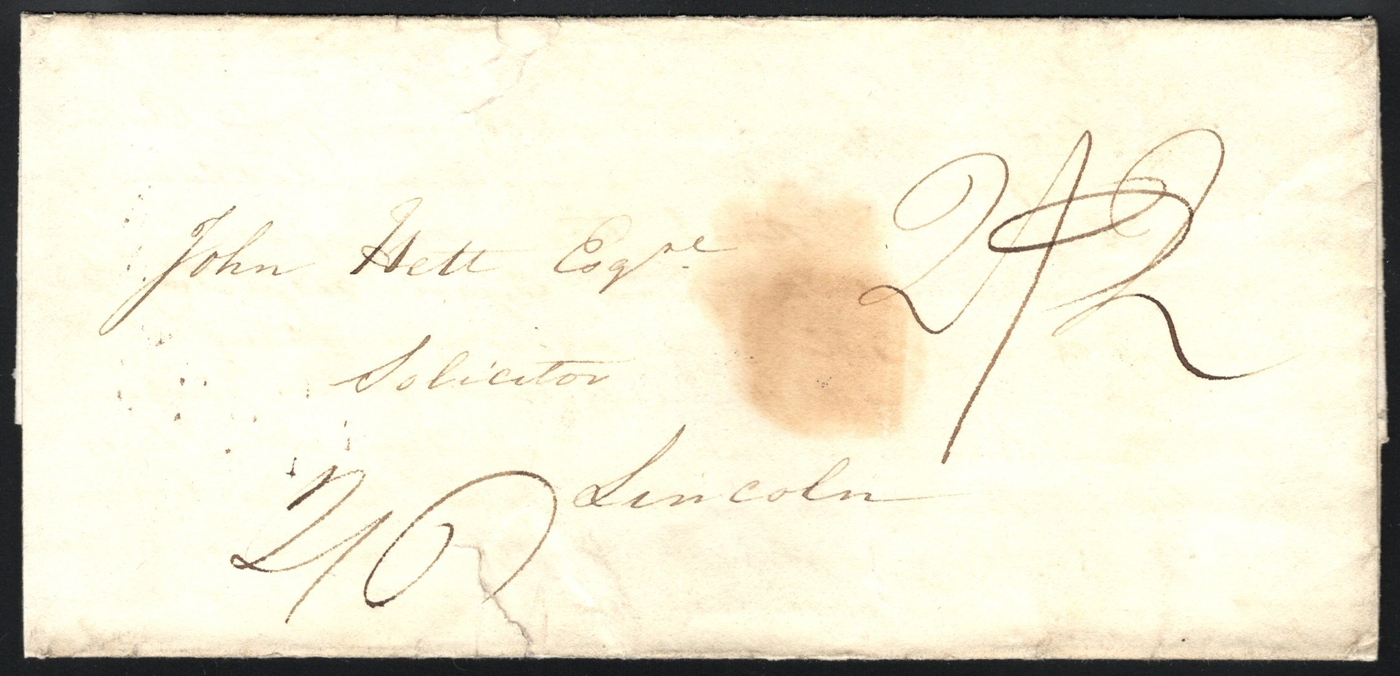 John Hett Esqre
2/2
Solicitor
Lincoln